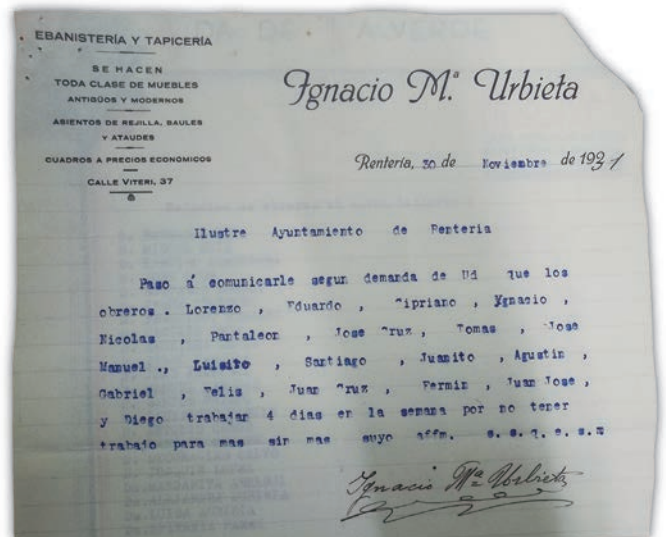 EBANISTERÍA Y TAPICERÍA
SE HACEN
TODA CLASE DE MUEBLES
ANTIGÜOS Y MODERNOS
ASIENTOS DE REJILLA, BAULES
Y ATAUDES
CUADROS A PRECIOS ECONOMICOS
CALLE VITERI, 37
Ignacio M.ª Urbieta
Rentería, 30 de Noviembre de 1931
Ilustre Ayuntamiento de Renteria
Paso á comunicarle segun demanda de Ud que los
obreros . Lorenzo , Eduardo , Cipriano , Ygnacio ,
Nicolas , Pantaleon , Jose Cruz , Tomas , Jose
Manuel ., Luisito , Santiago , Juanito , Agustin ,
Gabriel , Felis , Juan Cruz , Fermin , Juan Jose ,
y Diego trabajan 4 dias en la semana por no tener
trabajo para mas sin mas suyo affm. s. s. q. e. s. m
Ignacio Mª Urbieta